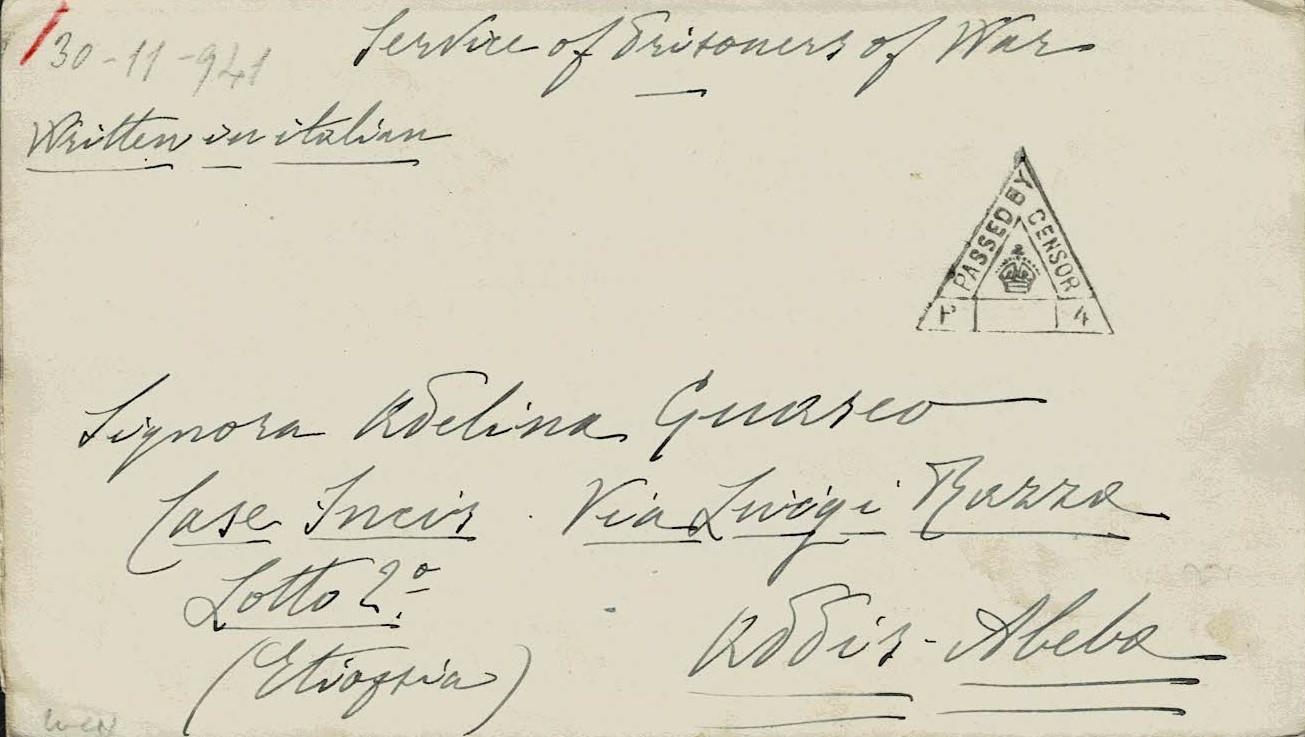 30-11-941
Service of Prisoners of War
Written in italian
PASSED BY CENSOR
4
Signora Adelina Guasco
Case Incis Via Luigi Razza
Lotto 2º
(Etiopia)
Addis-Abeba